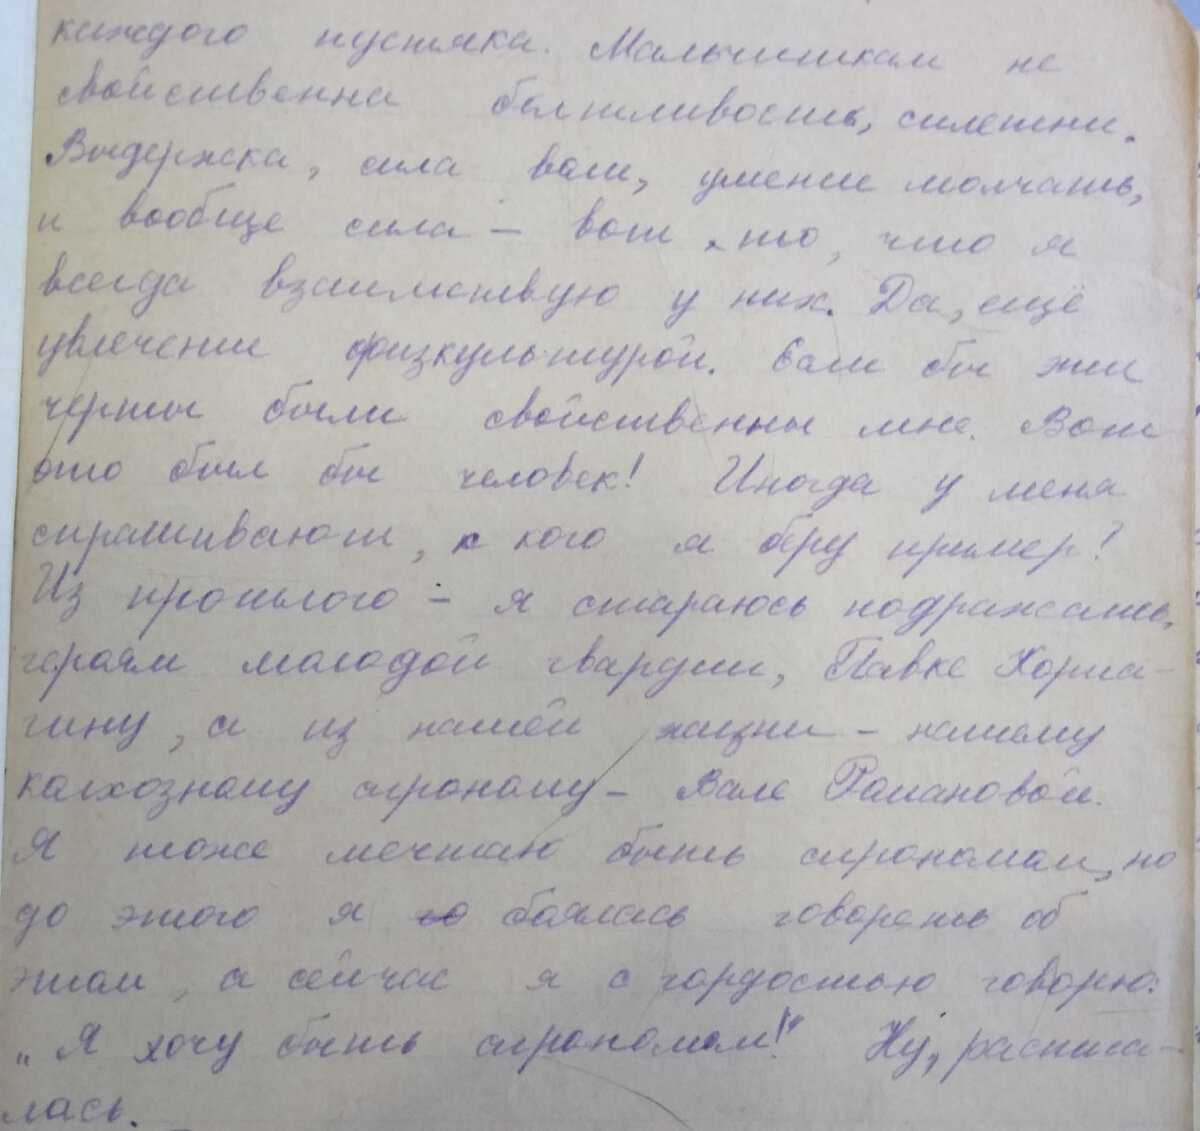 каждого пустяка. Мальчишкам не
свойственна болтливость, сплетни.
Выдержка, сила воли, умение молчать,
и вообще сила – вот то, что я
всегда взаимствую у них. Да, ещё
увлечение физкультурой. Если бы эти
черты были свойственны мне. Вот
это был бы человек! Иногда у меня
спрашивают, с кого я беру пример?
Из прошлого – я стараюсь подражать,
героям молодой гвардии, Павке Корча-
гину, а из нашей жизни – нашему
колхозному агроному – Вале Романовой.
Я тоже мечтаю быть агрономом, но
до этого я боялась говореть об
этом, а сейчас я с гордостью говорю:
„Я хочу быть агрономом!" Ну, расписа-
лась.